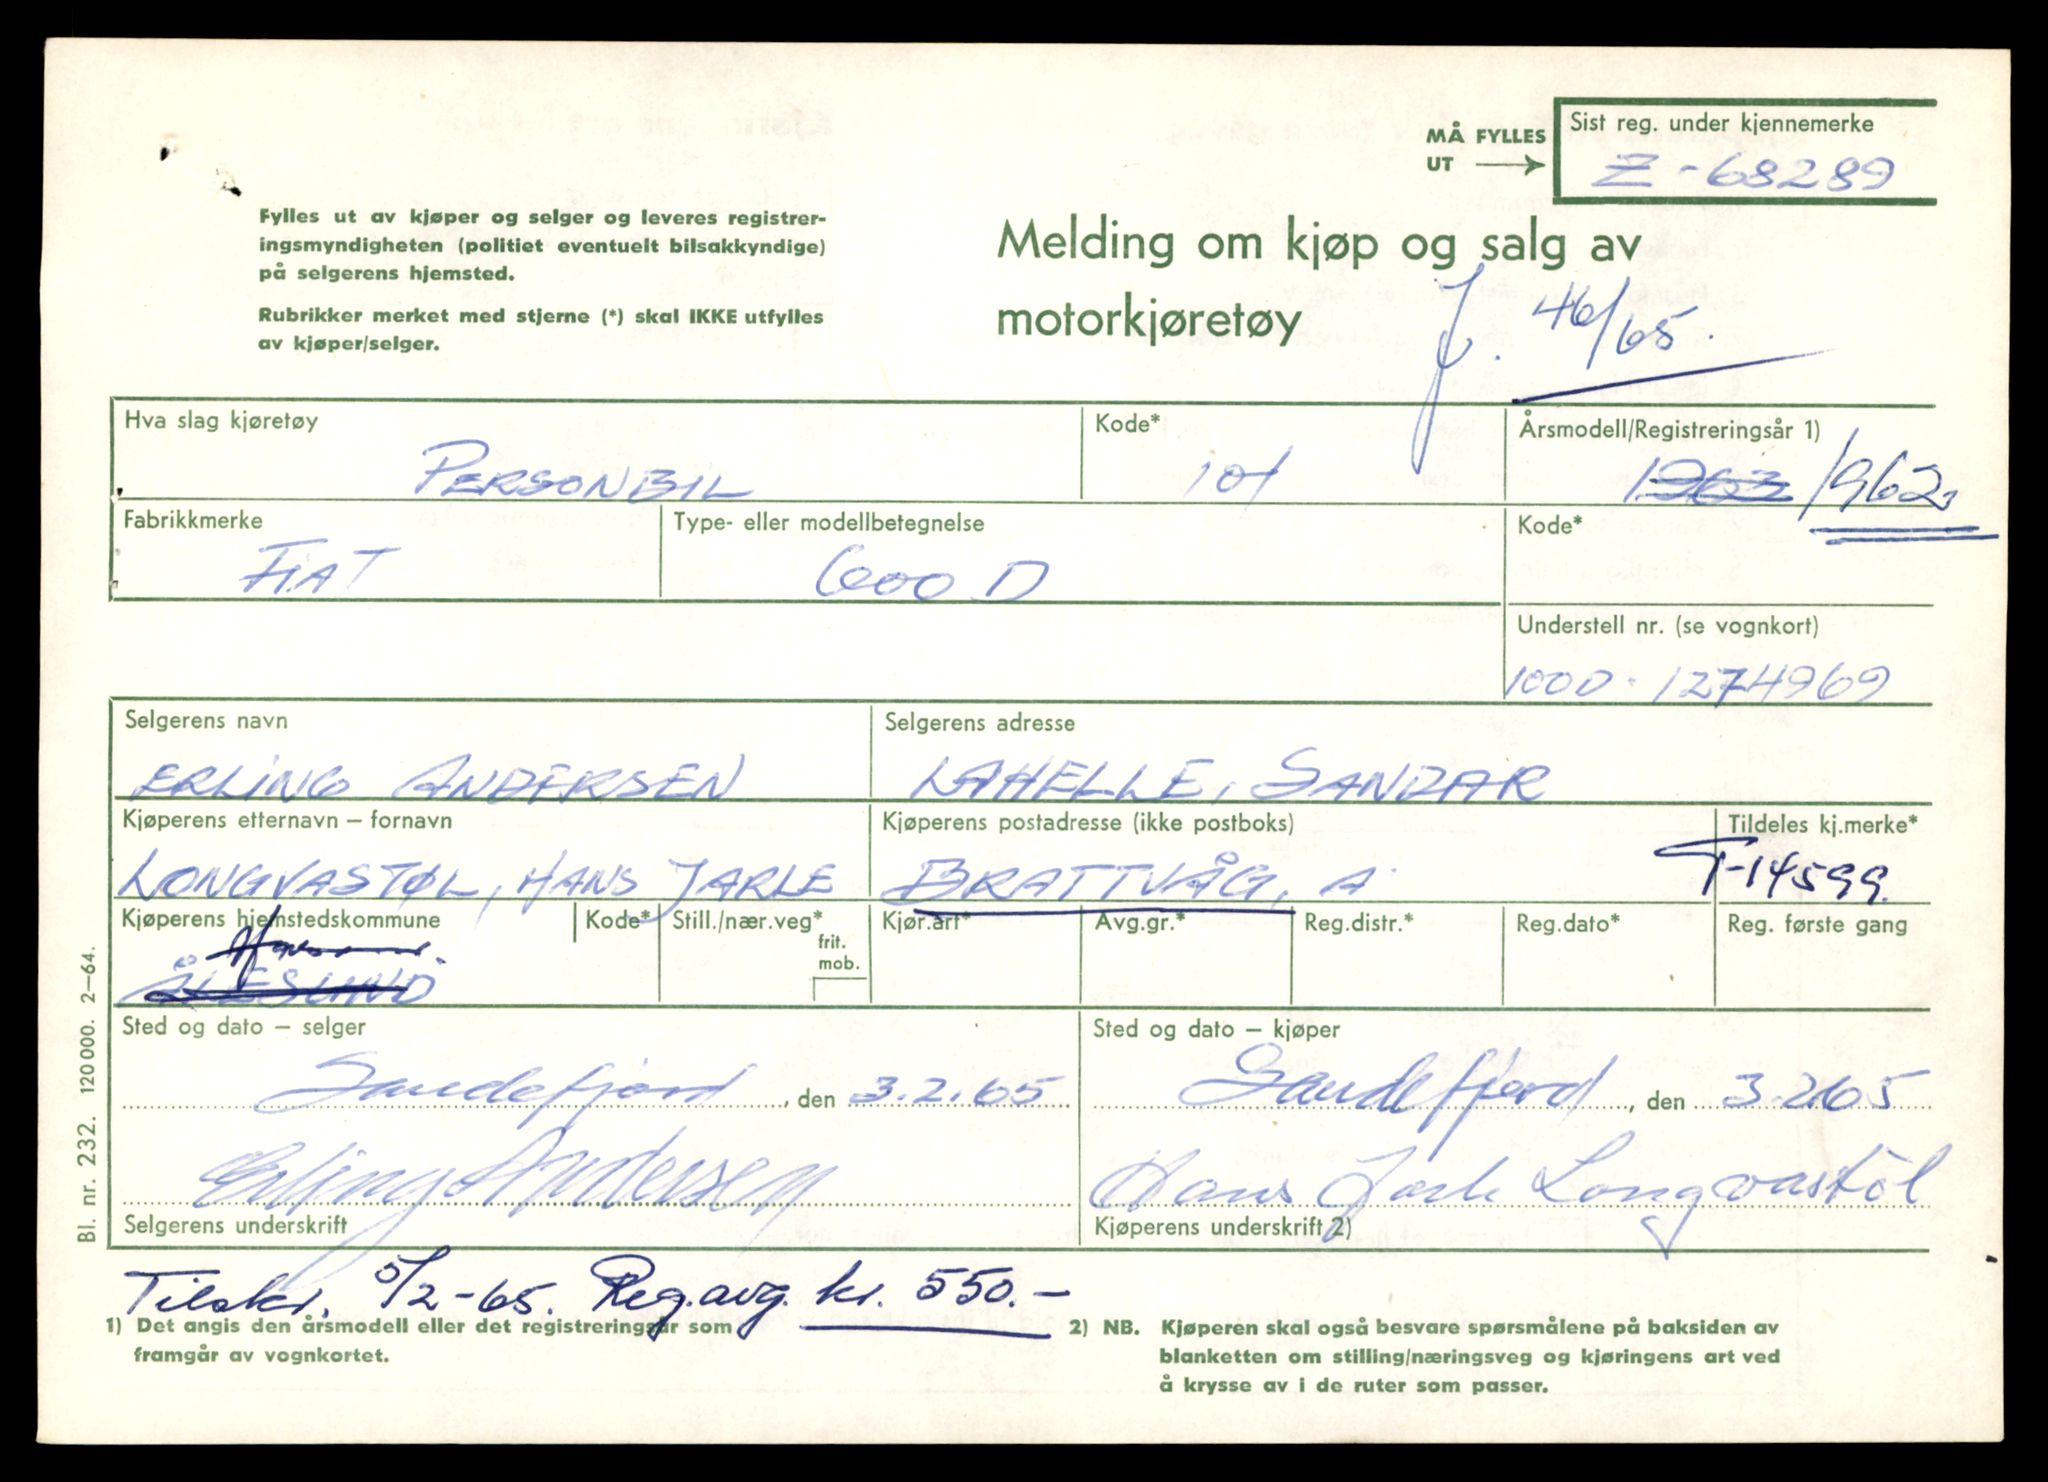 MÅ FYLLES UT →
Sist reg. under kjennemerke
Z-68289
Fylles ut av kjøper og selger og leveres registrer-
ingsmyndigheten (politiet eventuelt bilsakkyndige)
på selgerens hjemsted.
Rubrikker merket med stjerne (*) skal IKKE utfylles
av kjøper/selger.
Melding om kjøp og salg av
motorkjøretøy
J. 46/65.
Hva slag kjøretøy
PERSONBIL
Kode*
101
Årsmodell/Registreringsår 1)
1963 1962
Fabrikkmerke
FIAT
Type- eller modellbetegnelse
600 D
Kode*
Understell nr. (se vognkort)
100D-1274969
Selgerens navn
ERLING ANDERSEN
Selgerens adresse
LAHELLE, SANDAR
Kjøperens etternavn – fornavn
LONGVASTØL, HANS JARLE
Kjøperens postadresse (ikke postboks)
BRATTVÅG, A
Tildeles kj.merke*
T-14599.
Kjøperens hjemstedskommune
ÅLESUND
Kode*
Still./nær.veg*
frit.
mob.
Kjør.art*
Avg.gr.*
Reg.distr.*
Reg.dato*
Reg. første gang
Sted og dato – selger
Sandefjord, den 3.2.65
Sted og dato – kjøper
Sandefjord, den 3.2.65
Erling Andersen
Selgerens underskrift
Hans Jarle Longvastøl
Kjøperens underskrift 2)
Tilskr. 5/2-65. Reg.avg. kr. 550.-
1) Det angis den årsmodell eller det registreringsår som
framgår av vognkortet.
2) NB. Kjøperen skal også besvare spørsmålene på baksiden av
blanketten om stilling/næringsveg og kjøringens art ved
å krysse av i de ruter som passer.
Bl. nr. 232. 120 000. 2–64.